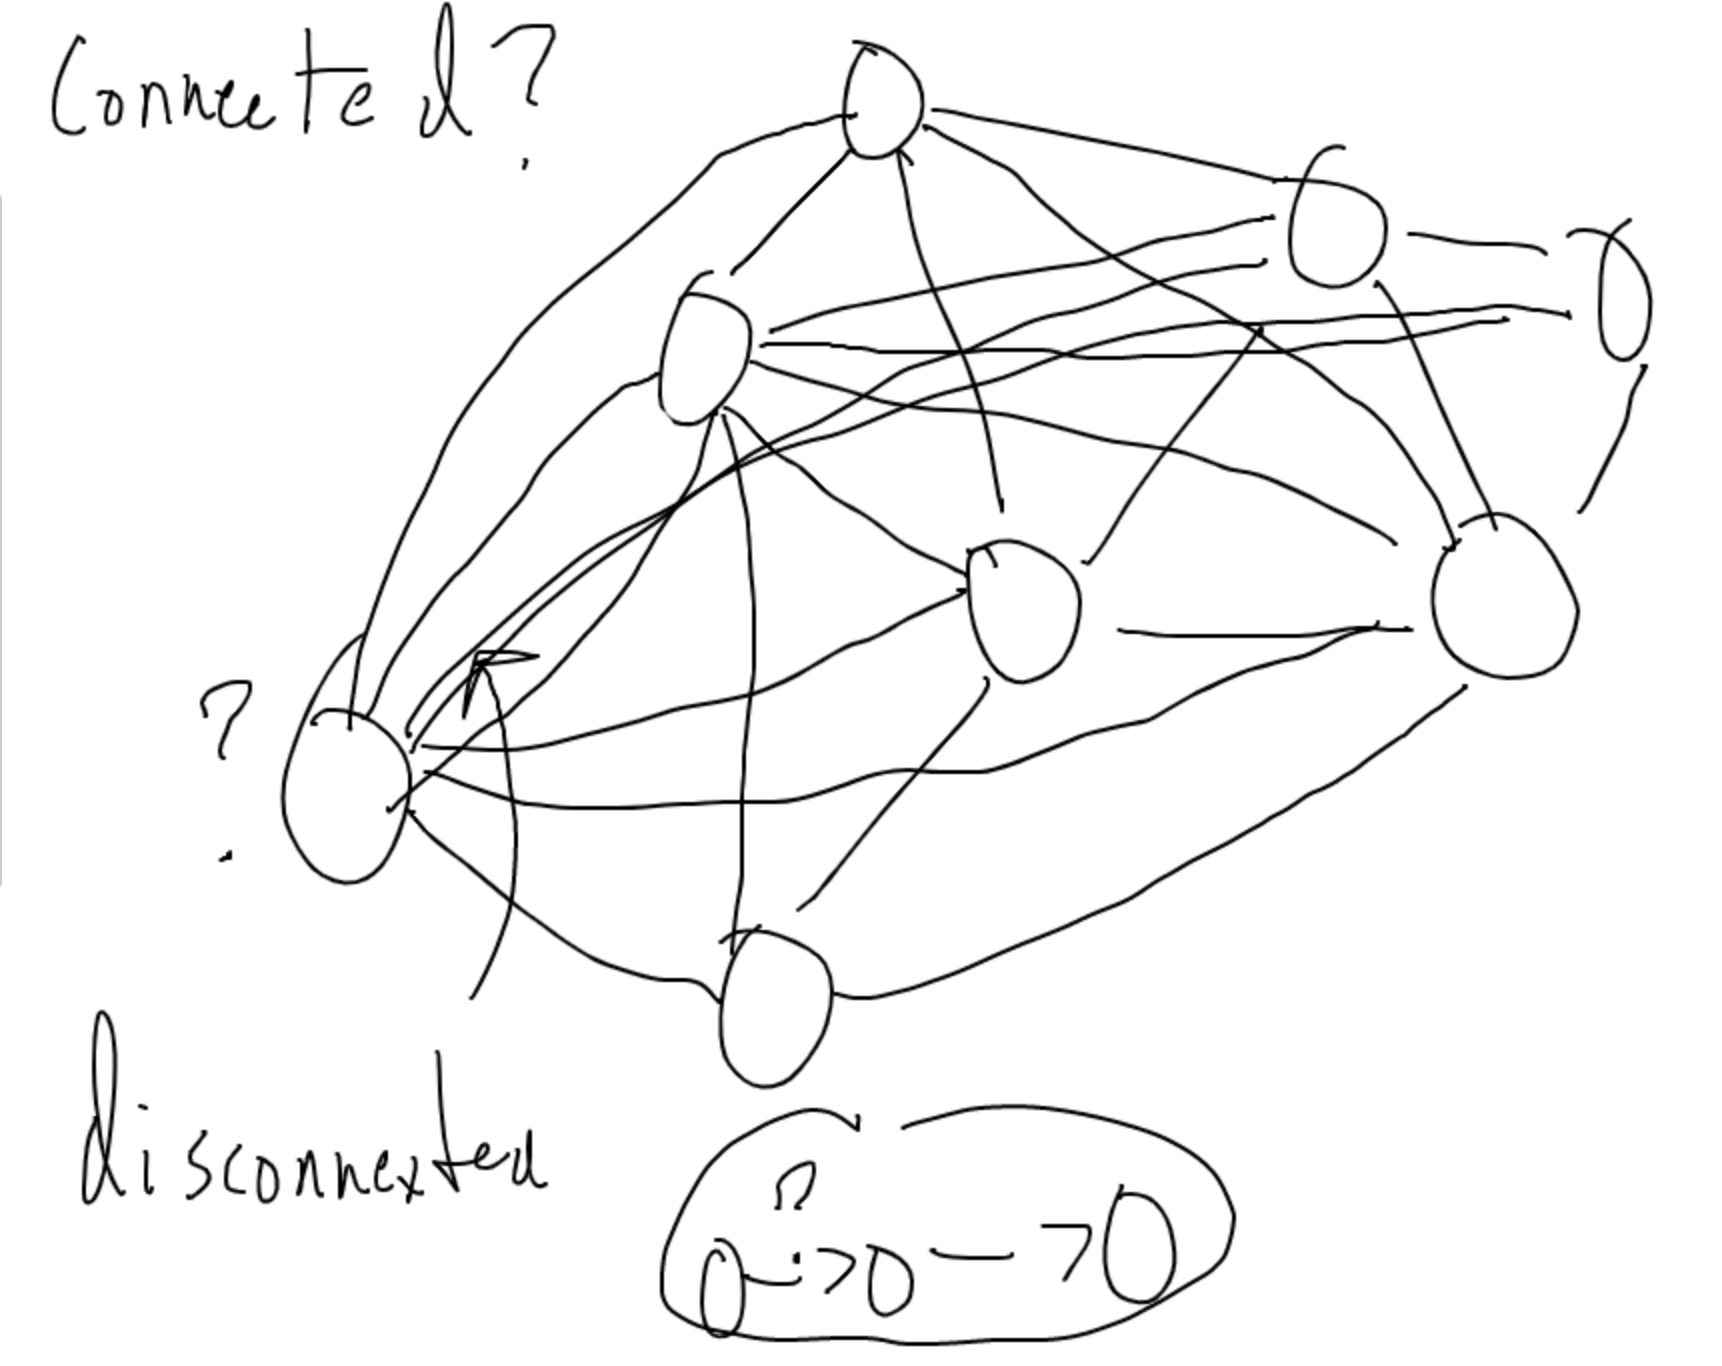 Connected?
?
disconnexted
?